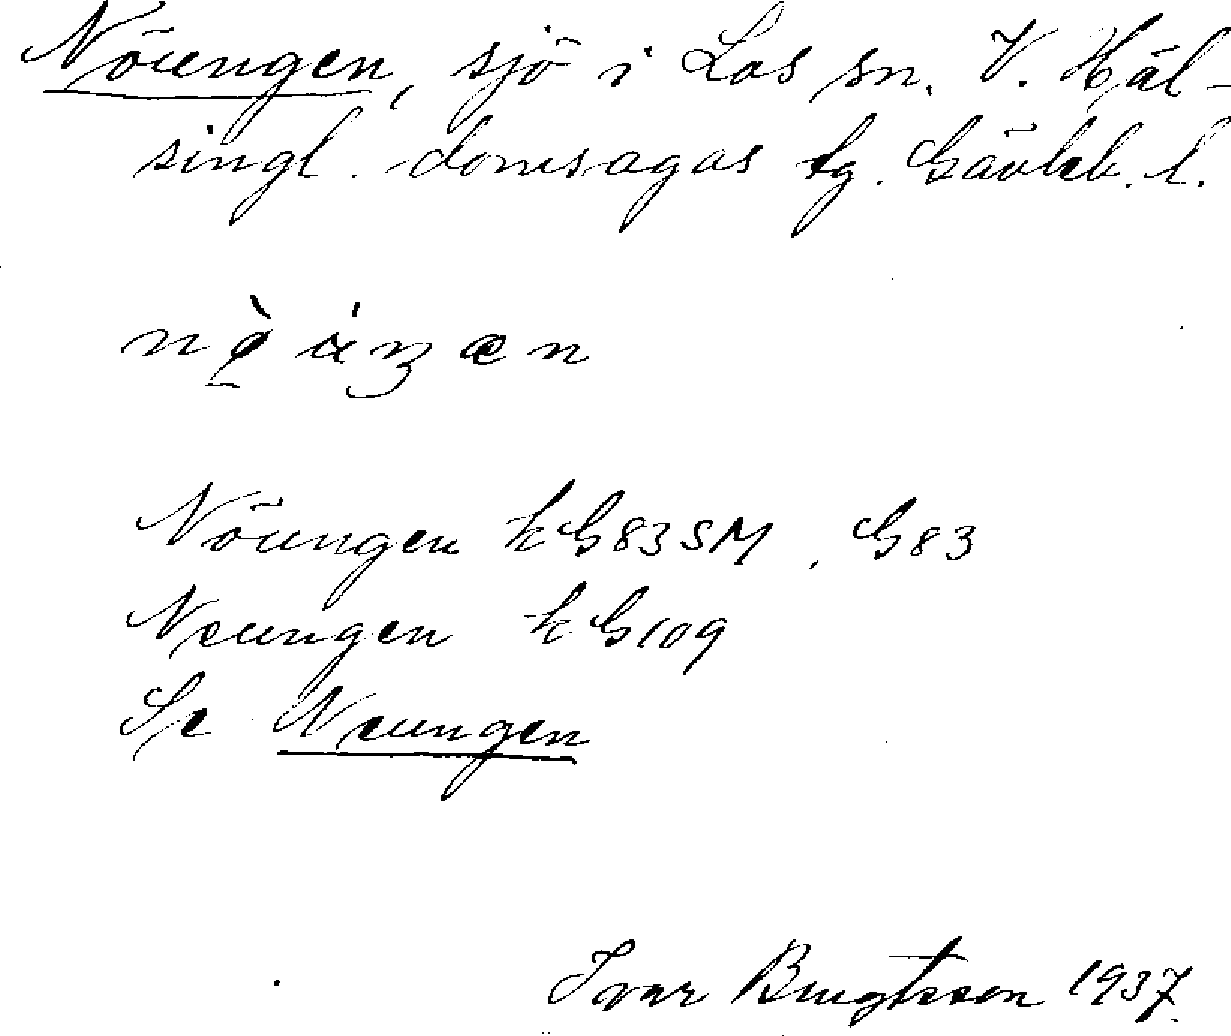 Nöungen, sjö i Los sn. V. Häl-
singl. domsagas tg. Gävleb. l.
Nöungen kG83SM, G83
Neungen kG109
Se Neungen
Ivar Bengtsson 1937